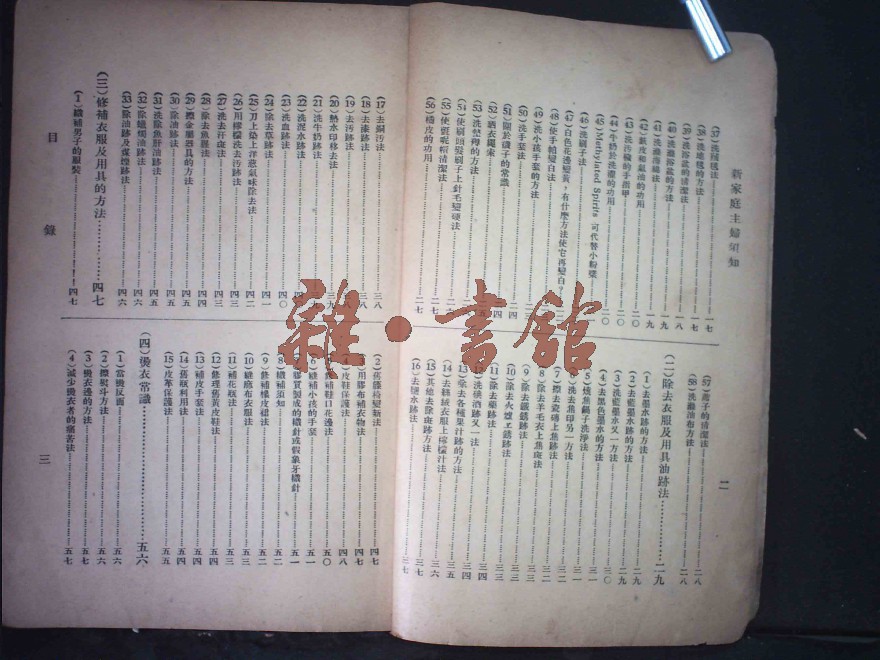 新家庭主婦須知
二
(37)洗絨毯法……一七
(38)洗地毯的方法……一七
(39)洗浴盆的清潔法……一八
(40)洗搪瓷浴盆的方法……一九
(41)洗海綿法……一九
(43)洗污穢的手指甲……二〇
(44)牛奶於洗濯的功用……二〇
(45)Methylated Spirits 可代替小粉漿……二〇
(46)洗刷子法
(47)白色花邊變黃，有什麼方法使它再變白？
(48)使手帕變白法
(49)洗小孩手套的方法
(50)洗手套法
(51)關於礬子的常識
(52)晒衣繩索
(53)洗墊褥的方法
(54)使刷頭髮刷子上針毛變硬法
(55)使呢帽清潔法……二七
(56)橘皮的功用……二七
(57)蓆子的清潔法……二八
(58)洗雞油布方法……二八
(二)除去衣服及用具油跡法……二九
(1)去墨水跡法……二九
(2)去藍墨水跡的方法……二九
(3)洗藍墨水又一方法……二九
(4)去黑色墨水的方法……三〇
(5)燒焦鍋子洗淨法……三一
(6)洗去焦印另一方法……三一
(7)擦去瓷磚上焦跡法……三二
(8)除去羊毛衣上焦斑法……三二
(9)除去鐵銹跡法……三三
(10)除去火爐工銹跡法……三三
(11)除去藥跡法……三三
(12)洗桃酒跡又一法……三四
(13)除去各種果汁跡的方法……三四
(14)去絲絨衣服上檸檬汁法……三五
(15)其他去除斑跡方法……三六
(16)去鹽水跡法……三七
(17)去銅污法……三八
(18)去漆跡法……三八
(19)去污跡法
(20)熱水印移去法……三九
(21)洗牛奶跡法
(22)洗泥水跡法
(23)洗血跡法……四〇
(24)除去草跡法……四一
(25)刀上除上洋葱氣味除去法……四二
(26)用檸檬洗去污跡法……四三
(27)洗去汗斑法……四三
(28)除去魚腥法……四四
(29)擦金屬器具的方法……四四
(30)除油跡法……四五
(31)洗除魚肝油跡法……四五
(32)除蠟燭油跡法……四六
(33)除油跡及煤煙跡法……四六
(三)修補衣服及用具的方法……四七
(1)織補男子的服裝……四七
目錄
三
(2)舊籐椅變新法……四七
(3)用膠布補衣物法……四七
(4)皮鞋保護法……四八
(5)修補鞋口花邊法……五〇
(6)縫補小孩的手套……五一
(7)膠質製成的織針或假象牙織針……五一
(8)織補須知……五二
(9)修補橡皮裙法……五二
(10)縫麻布衣服法……五三
(11)補花瓶法……五三
(12)修理舊黃皮鞋法……五四
(13)補皮手套法……五四
(14)舊瓶利用法……五五
(15)皮革保護法……五五
(四)燙衣常識……五六
(1)當燙反面……五六
(2)擦熨斗方法……五六
(3)燙衣邊的方法……五七
(4)減少燙衣者的痛苦法……五七
雜·書館